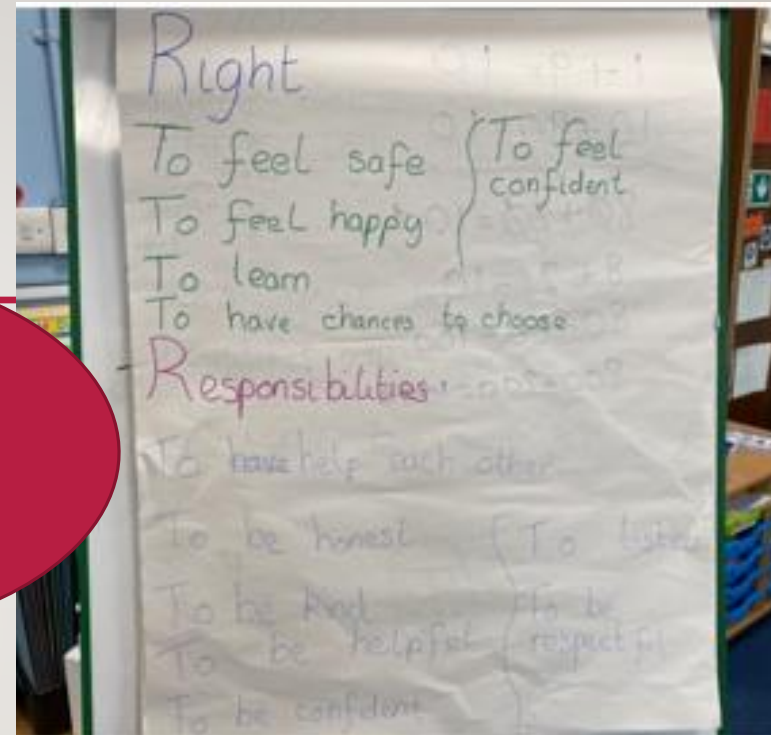 Right
To feel safe
To feel happy
To learn
To feel
confident
To have chances to choose
Responsibilities
To have help each other
To be honest
To be kind
To be helpful
To be confident
To listen
To be
respectful